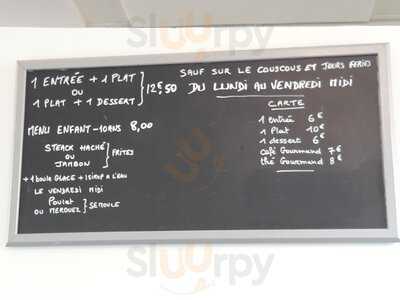 1 ENTRÉE + 1 PLAT
OU
1 PLAT + 1 DESSERT
12€,50
SAUF SUR LE COUSCOUS ET JOURS FERIÉS
DU LUNDI AU VENDREDI MIDI
MENU ENFANT -10ANS 8,00
STEACK HACHÉ
OU
JAMBON
FRITES
+ 1 BOULE GLACE + 1 SIROP A L'EAU
LE VENDREDI MIDI
POULET
OU MERGUEZ
SEMOULE
CARTE
1 Entrée 6€
1 Plat 10€
1 dessert 6€
café Gourmand 7€
thé Gourmand 8€
sluurpy
sluurpy